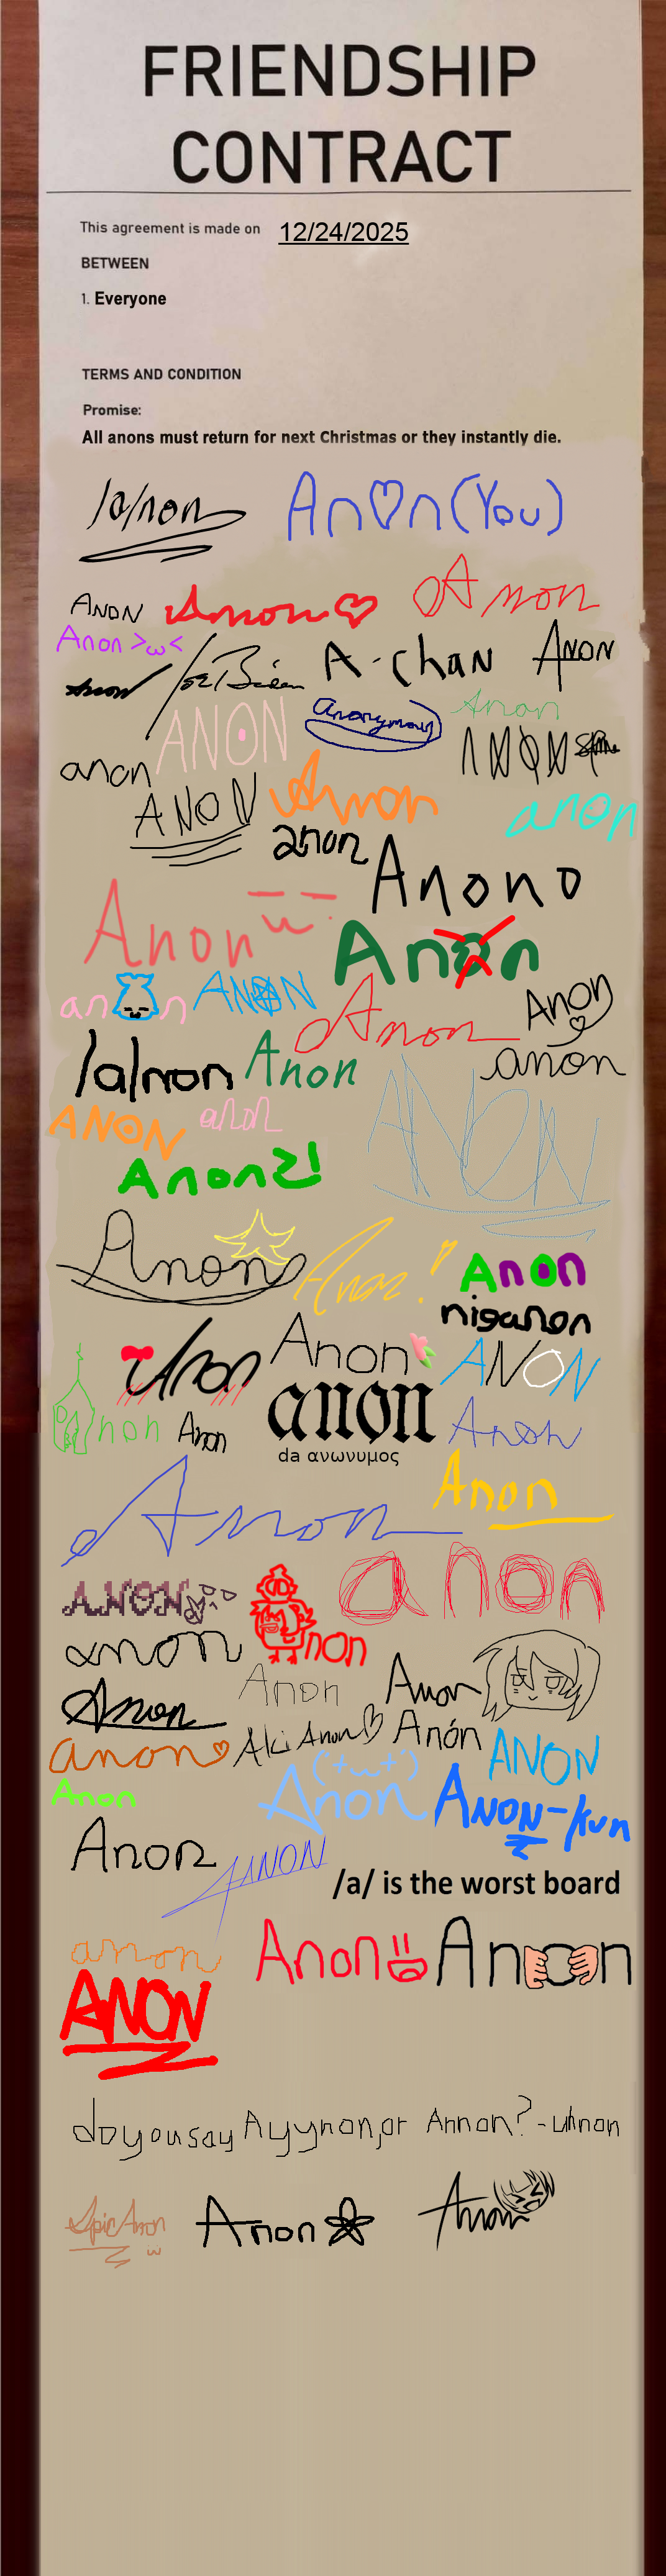 FRIENDSHIP
CONTRACT
This agreement is made on 12/24/2025
BETWEEN
1. Everyone
TERMS AND CONDITION
Promise:
All anons must return for next Christmas or they instantly die.
/a/non
An♡n(You)
ANON
Anon♡
Anon
Anon >ω<
Anon
Joe Biden
A-chan
ANON
ANON
Anonymous
Anon
anon
ANON
ANON
Anon
anon
anon
Anono
Anon
Anon
an n
ANON
Anon
Anon
/a/non
Anon
anon
ANON
anon
ANON
Anon2!
Anon
Anon!
Anon
niganon
Anon
Anon
ANON
Anon
Anon
anon
da ανωνυμος
Anon
Anon
Anon
ANON
anon
non
anon
Anon
Anon
Anon
anon♡
Aki Anon♡
Anón
ANON
Anon
('+ω+')
Anon
ANON-kun
Anon
ANON
/a/ is the worst board
anon
Anon
Anon
ANON
do you say Ayynon, or Annon? -
Anon
Anon